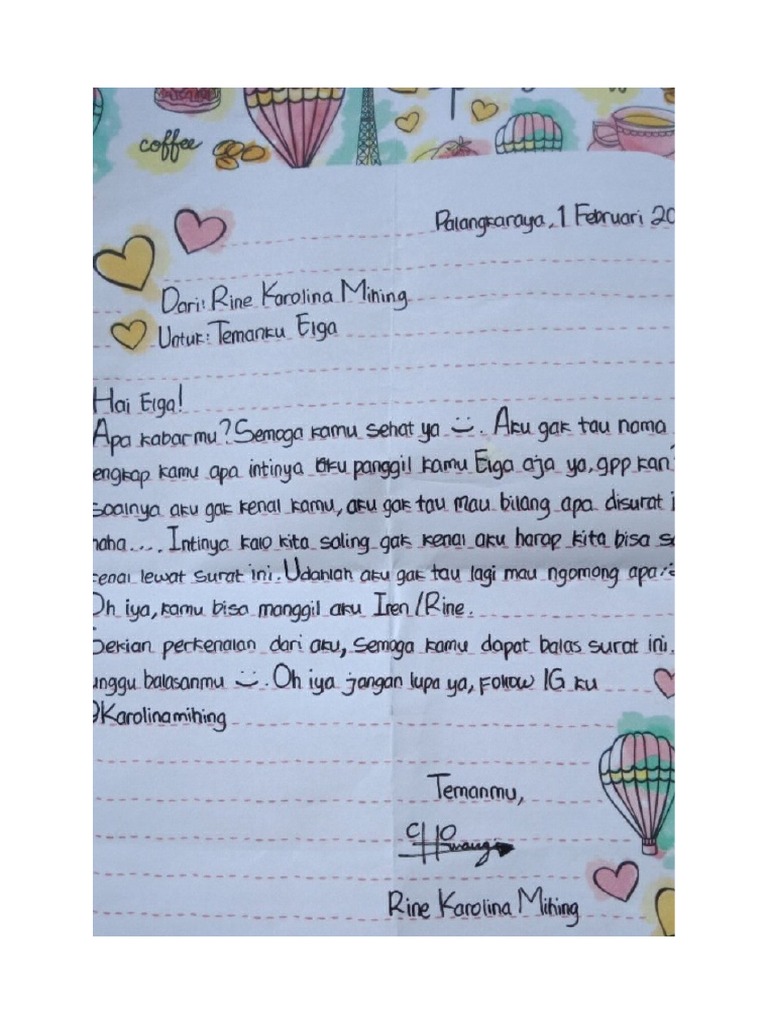 coffee
Palangkaraya, 1 Februari 20
Dari: Rine Karolina Mihing
Untuk: Temanku Elga
Hai Elga!
Apa kabarmu? Semoga kamu sehat ya :). Aku gak tau nama
engkap kamu apa intinya aku panggil kamu Elga aja ya, gpp kan?
soalnya aku gak kenal kamu, aku gak tau mau bilang apa disurat i
haha.... Intinya kalo kita saling gak kenal aku harap kita bisa sa
kenal lewat surat ini. Udahlah aku gak tau lagi mau ngomong apa
Oh iya, kamu bisa manggil aku Iren/Rine.
Sekian perkenalan dari aku, semoga kamu dapat balas surat ini.
unggu balasanmu :). Oh iya jangan lupa ya, Follow IG ku
@Karolinamihing
Temanmu,
Rine Karolina Mihing